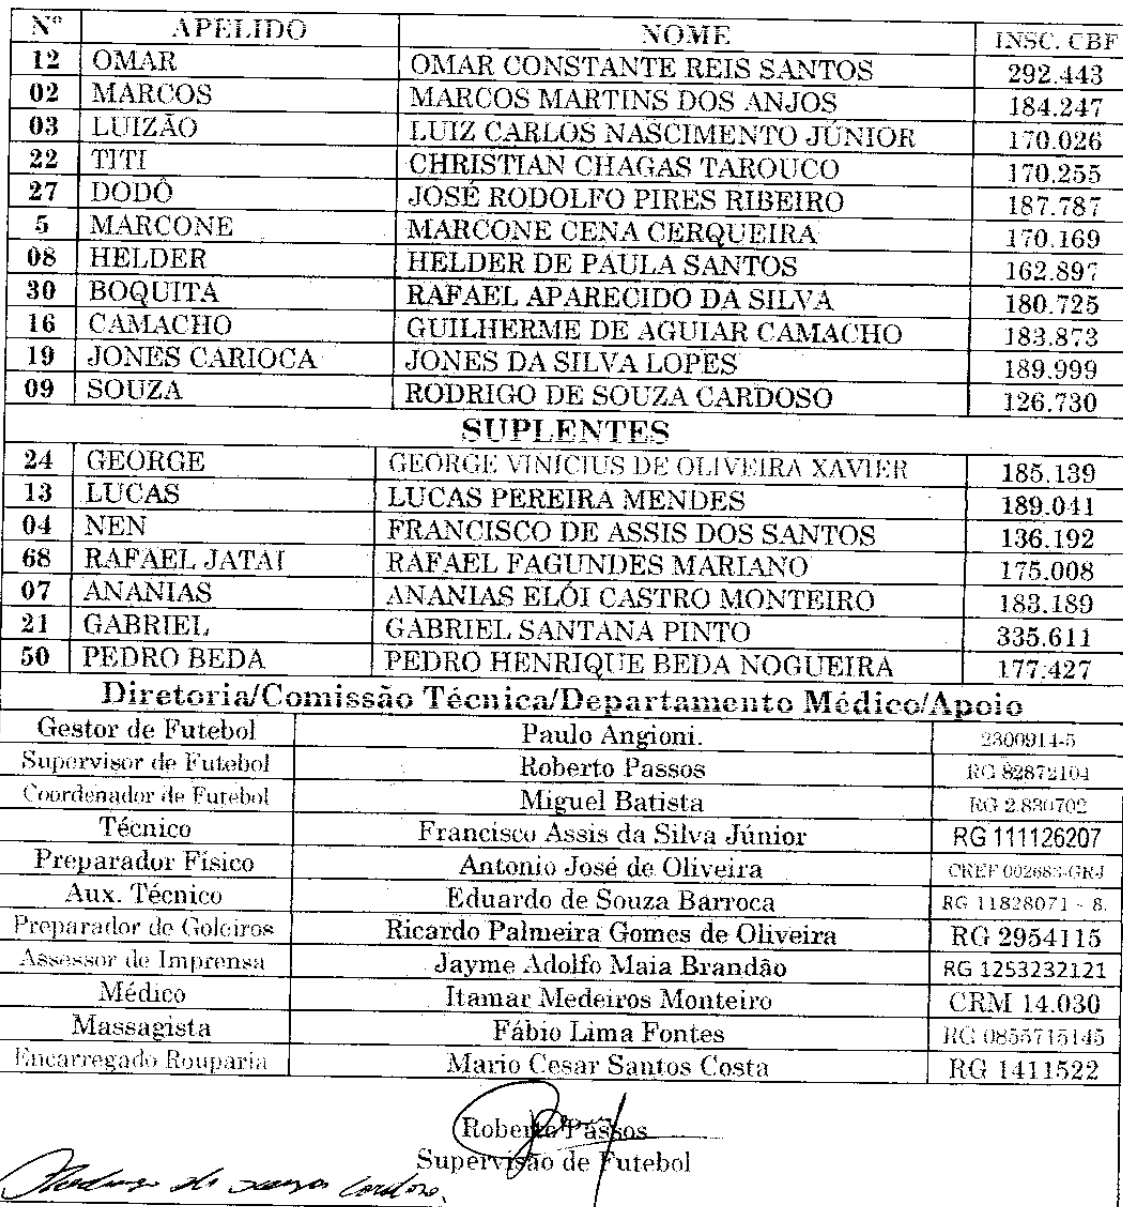 Nº APELIDO NOME INSC. CBF
12 OMAR OMAR CONSTANTE REIS SANTOS 292.443
02 MARCOS MARCOS MARTINS DOS ANJOS 184.247
03 LUIZÃO LUIZ CARLOS NASCIMENTO JÚNIOR 170.026
22 TITI CHRISTIAN CHAGAS TAROUCO 170.255
27 DODÔ JOSÉ RODOLFO PIRES RIBEIRO 187.787
5 MARCONE MARCONE CENA CERQUEIRA 170.169
08 HELDER HELDER DE PAULA SANTOS 162.897
30 BOQUITA RAFAEL APARECIDO DA SILVA 180.725
16 CAMACHO GUILHERME DE AGUIAR CAMACHO 183.873
19 JONES CARIOCA JONES DA SILVA LOPES 189.999
09 SOUZA RODRIGO DE SOUZA CARDOSO 126.730
SUPLENTES
24 GEORGE GEORGE VINÍCIUS DE OLIVEIRA XAVIER 185.139
13 LUCAS LUCAS PEREIRA MENDES 189.041
04 NEN FRANCISCO DE ASSIS DOS SANTOS 136.192
68 RAFAEL JATAÍ RAFAEL FAGUNDES MARIANO 175.008
07 ANANIAS ANANIAS ELÓI CASTRO MONTEIRO 183.189
21 GABRIEL GABRIEL SANTANA PINTO 335.611
50 PEDRO BEDA PEDRO HENRIQUE BEDA NOGUEIRA 177.427
Diretoria/Comissão Técnica/Departamento Médico/Apoio
Gestor de Futebol Paulo Angioni. 2300914-5
Supervisor de Futebol Roberto Passos RG 82872104
Coordenador de Futebol Miguel Batista RG 2.830702
Técnico Francisco Assis da Silva Júnior RG 111126207
Preparador Físico Antonio José de Oliveira CREF 002683-GRJ
Aux. Técnico Eduardo de Souza Barroca RG 11828071 - 8.
Preparador de Goleiros Ricardo Palmeira Gomes de Oliveira RG 2954115
Assessor de Imprensa Jayme Adolfo Maia Brandão RG 1253232121
Médico Itamar Medeiros Monteiro CRM 14.030
Massagista Fábio Lima Fontes RG 0855715145
Encarregado Rouparia Mario Cesar Santos Costa RG 1411522
Roberto Passos
Supervisão de Futebol
Rodrigo de Souza Cardoso.